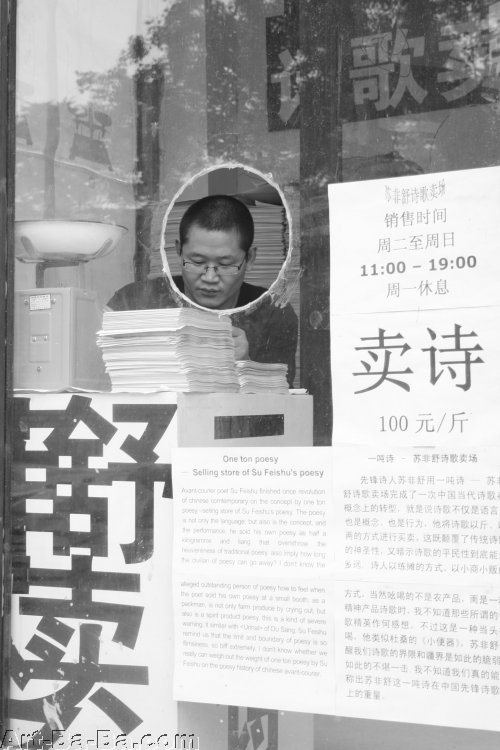 诗
歌
卖
苏非舒诗歌卖场
销售时间
周二至周日
11:00 – 19:00
周一休息
卖诗
100 元/斤
舒
卖
One ton poesy
– Selling store of Su Feishu's poesy
Avant-courier poet Su Feishu finished once revolution
of chinese contemporary on the concept by one ton
poesy -selling store of Su Feishu's poesy. The poesy
is not only the language, but also is the concept, and
the performance, he sold his own poesy as half a
kilogramme and liang that is overwhelm the
heavenliness of traditional poesy, also imply how long
the civilian of poesy can go away? I don't know the
alleged outstanding person of poesy how to feel when
the poet sold his own poesy at a small booth, as a
packman, is not only farm produce by crying out, but
also is a spirit product poesy, this is a kind of severe
warning, it similar with <Urinal> of Du Sang, Su Feishu
remind us that the rim and boundary of poesy is so
flimsiness, so biff extremely. I don't know whether we
really can weigh out the weight of one ton poesy by Su
Feishu on the poesy history of chinese avant-courier.
一吨诗 – 苏非舒诗歌卖场
先锋诗人苏非舒用一吨诗 – 苏非
舒诗歌卖场完成了一次中国当代诗歌在
概念上的转型，就是说诗歌不仅是语言，
也是概念，也是行为，他将诗歌以斤、
两的方式进行买卖，这既颠覆了传统诗歌
的神圣性，又暗示诗歌的平民性到底能走
多远。诗人以练摊的方式，以小商小贩的
方式，当然吆喝的不是农产品，而是一种
精神产品诗歌时，我不知道那些所谓的诗
歌精英作何感想。不过这是一种当头棒
喝，他类似杜桑的《小便器》，苏非舒提
醒我们诗歌的界限和疆界是如此的脆弱，
如此的不堪一击。我不知道我们真的能
称出苏非舒这一吨诗在中国先锋诗歌史
上的重量。
Art-Ba-Ba.com